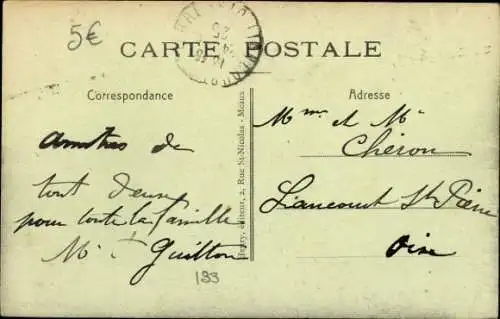 5€
CARTE POSTALE
Correspondance
Adresse
Amitiés de
tout
pour toute la famille
Mr Guitton
133
Mme et Mr
Chéron
Liancourt St Pierre
Oise
éditeur, 2, Rue St-Nicolas - Meaux